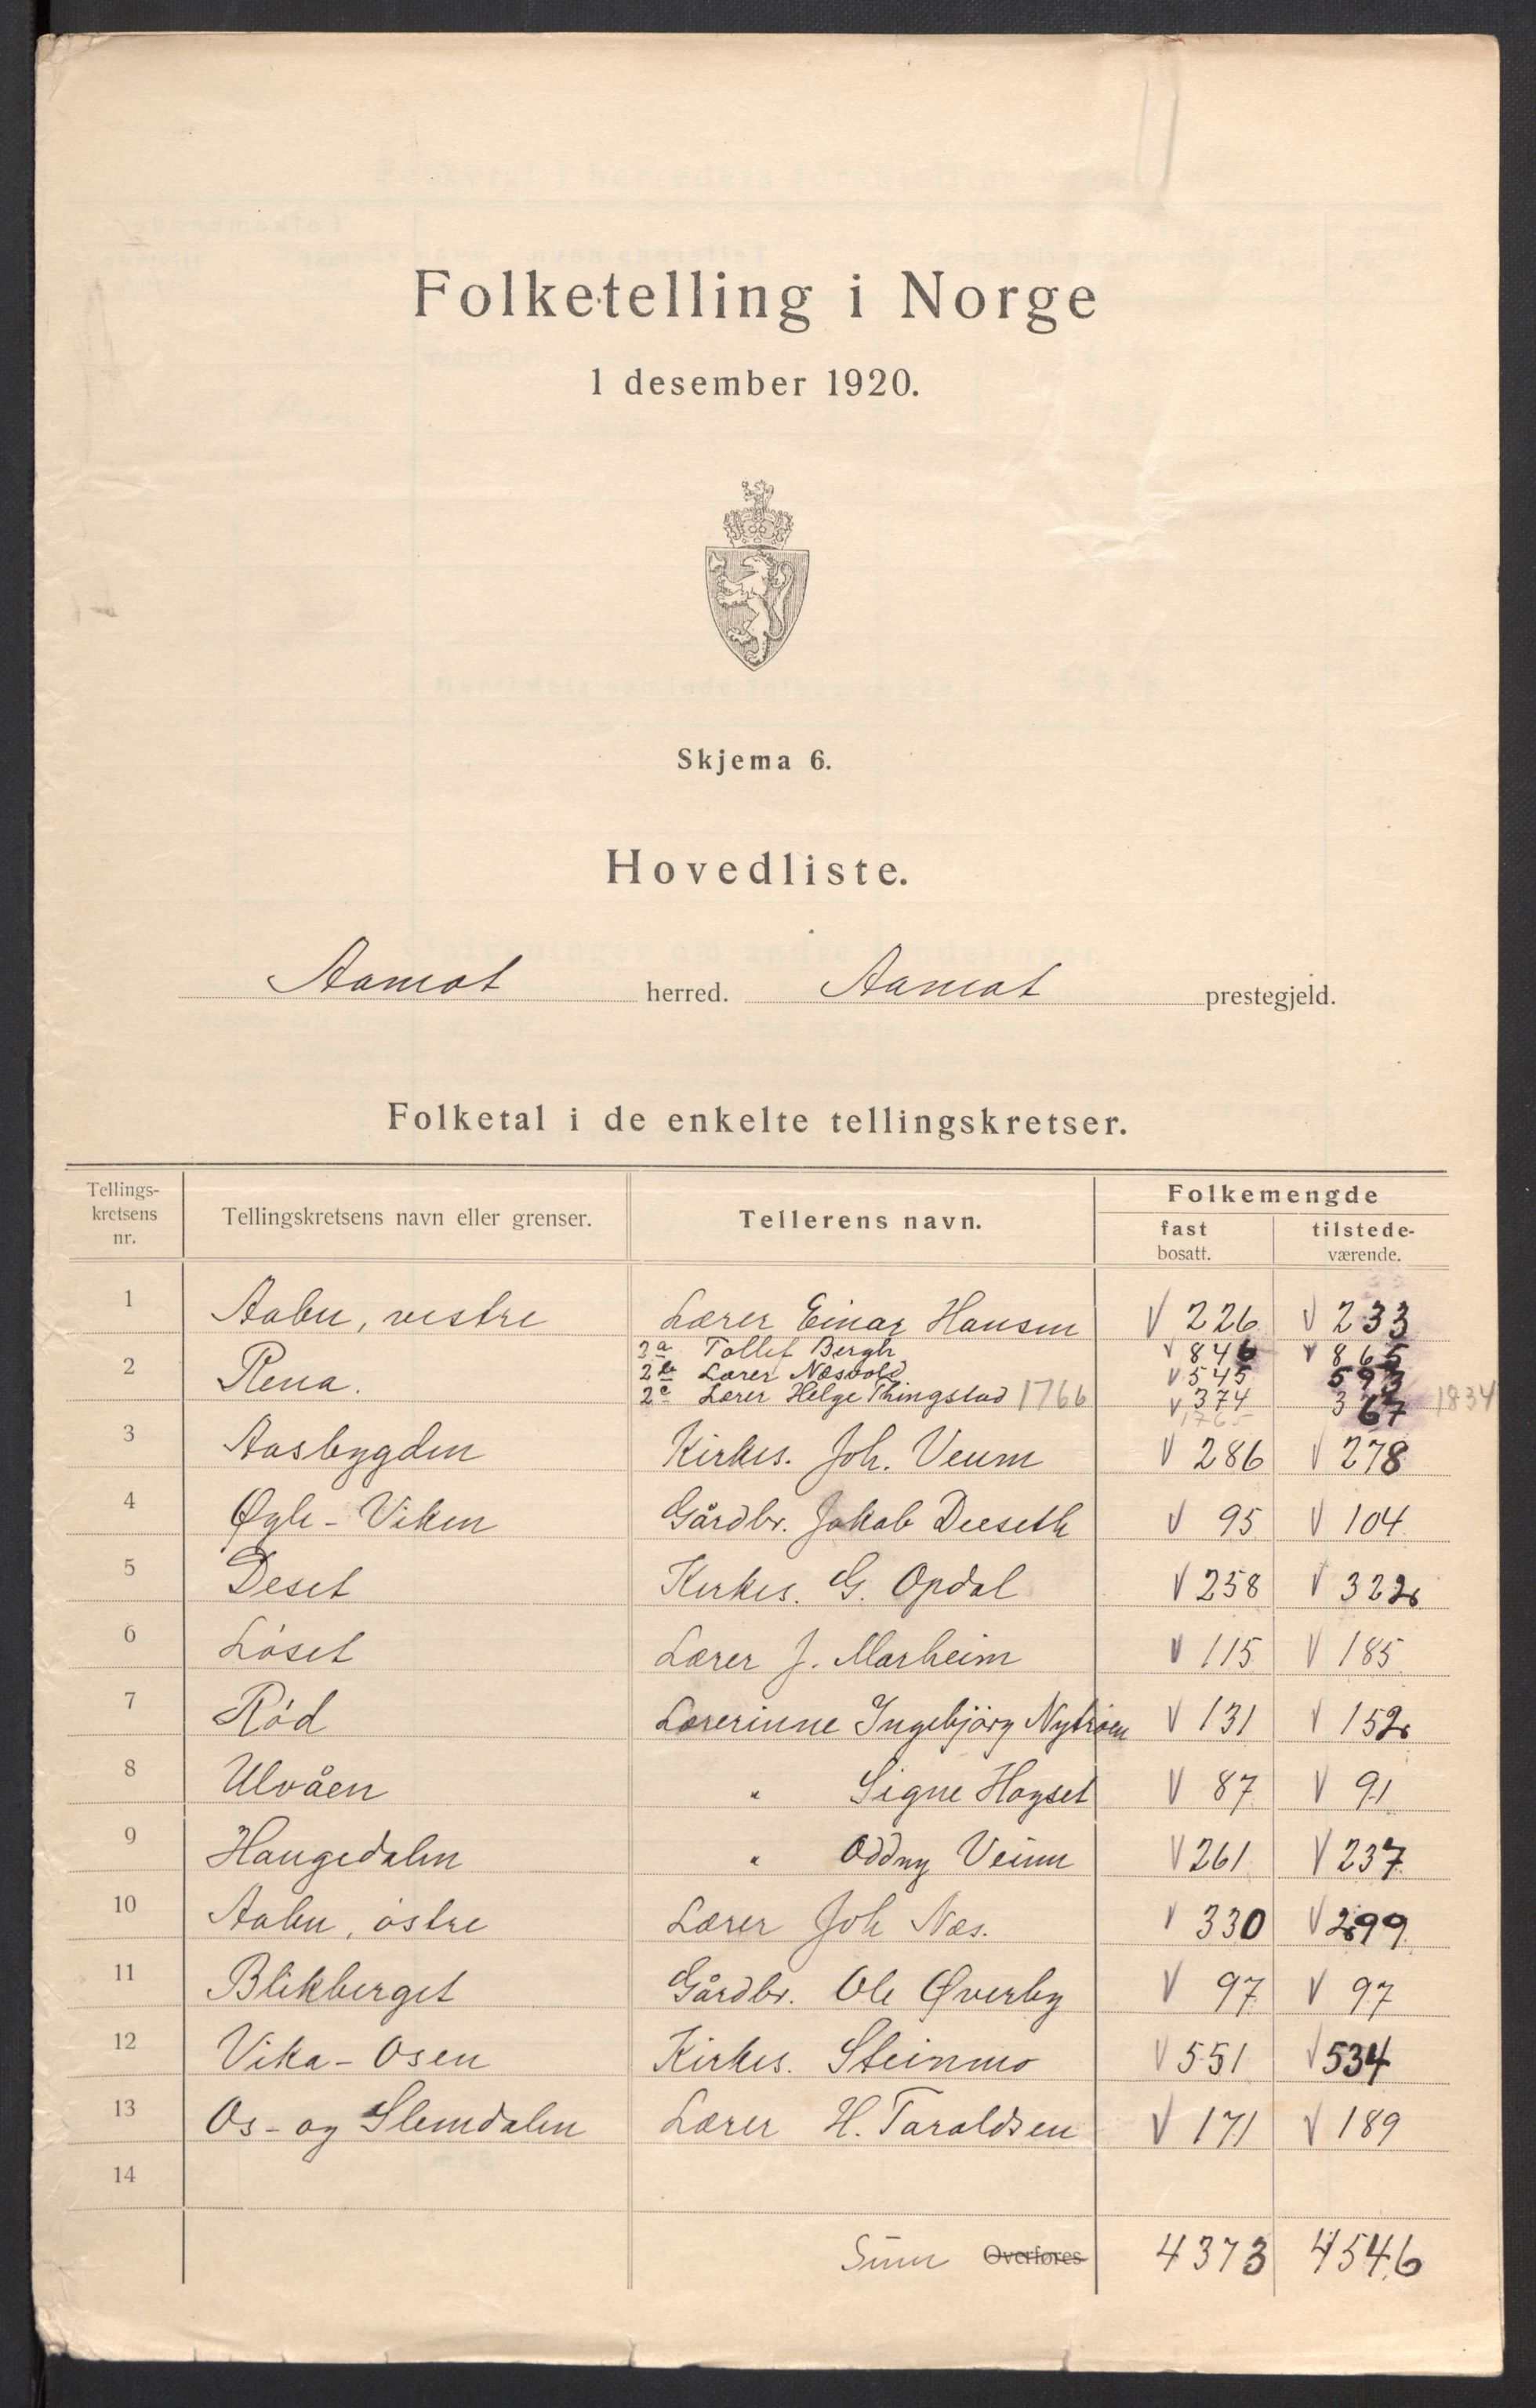 Folketelling i Norge
1 desember 1920.
Skjema 6.
Hovedliste.
Aamot herred. Aamot prestegjeld.
Folketal i de enkelte tellingskretser.
Tellings-kretsens nr. Tellingskretsens navn eller grenser. Tellerens navn. Folkemengde
fast bosatt. tilstede-værende.
1 Aabu, vestre Lærer Einar Hansen V 226 V 233
2 Rena. 2a Tollef Bergh V 846 V 865
2b Lærer Næsvold V 545 593
2c Lærer Helge Thingstad 1766 V 374 367 1834
1765
3 Aasbygden Kirkes. Joh. Veum V 286 V 278
4 Øgle-Viken Gårdbr. Jakob Deeseth V 95 V 104
5 Deset Kirkes. G. Opdal V 258 V 322
6 Löset Lærer J. Marheim V 115 V 185
7 Röd Lærerinne Ingebjörg Nytröen V 131 V 152
8 Ulvåen " Signe Hogset V 87 V 91
9 Haugedalen " Oddny Veum V 261 V 237
10 Aabu, östre Lærer Joh Næs. V 330 V 299
11 Blikberget Gårdbr. Ole Øverby V 97 V 97
12 Vika-Osen Kirkes. Steinmo V 551 V 534
13 Os- og Slemdalen Lærer H. Taraldsen V 171 V 189
14
Sum Overføres 4373 4546